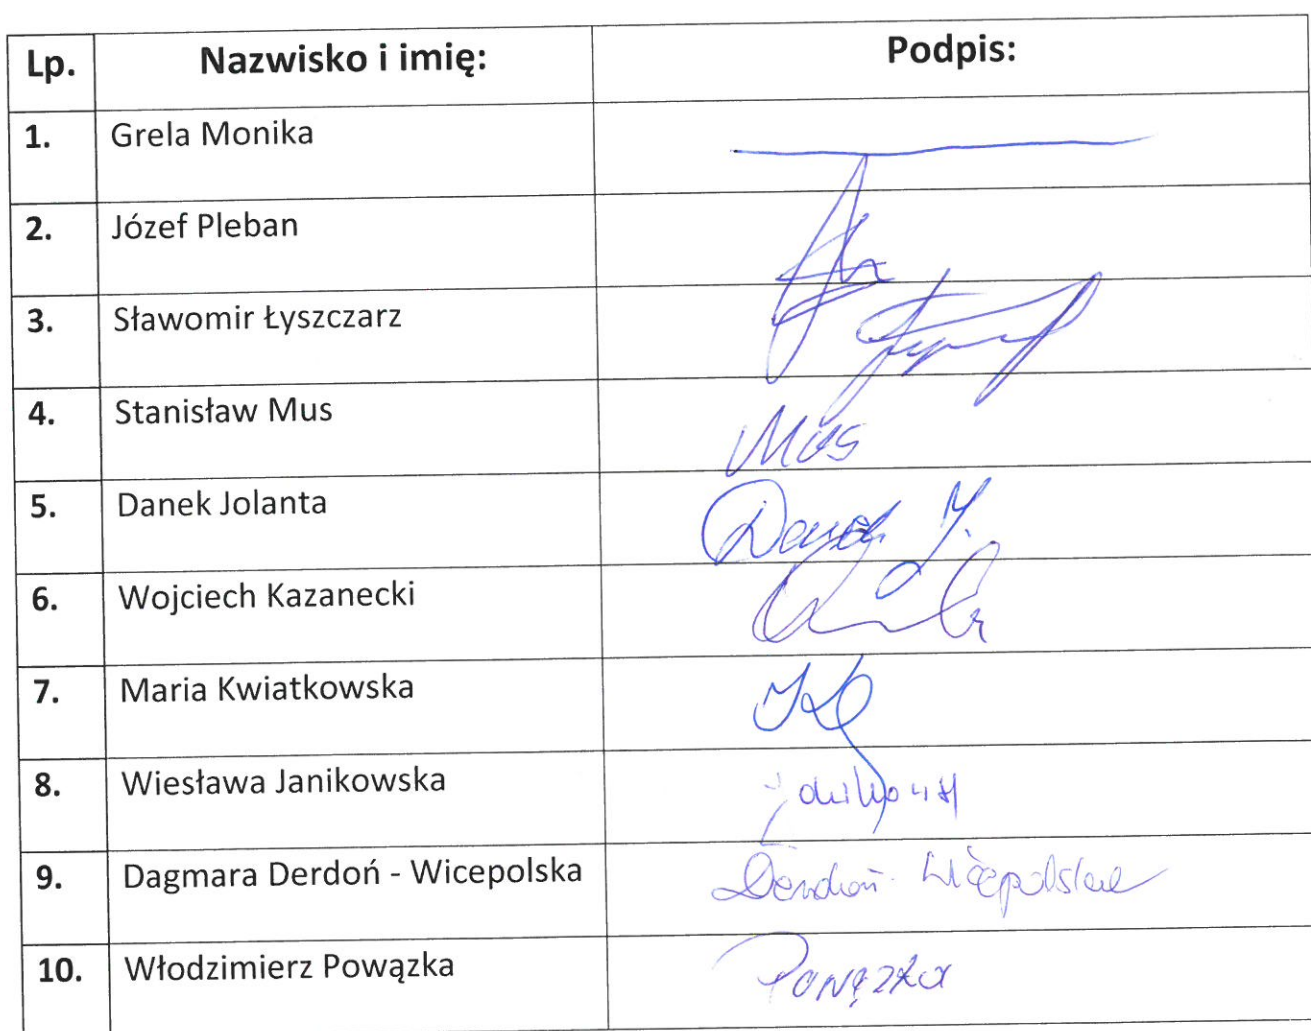 Lp. Nazwisko i imię: Podpis:
1. Grela Monika
2. Józef Pleban
3. Sławomir Łyszczarz
4. Stanisław Mus Mus
5. Danek Jolanta Danek J.
6. Wojciech Kazanecki
7. Maria Kwiatkowska
8. Wiesława Janikowska
9. Dagmara Derdoń - Wicepolska Derdoń - Wicepolska
10. Włodzimierz Powązka Powązka